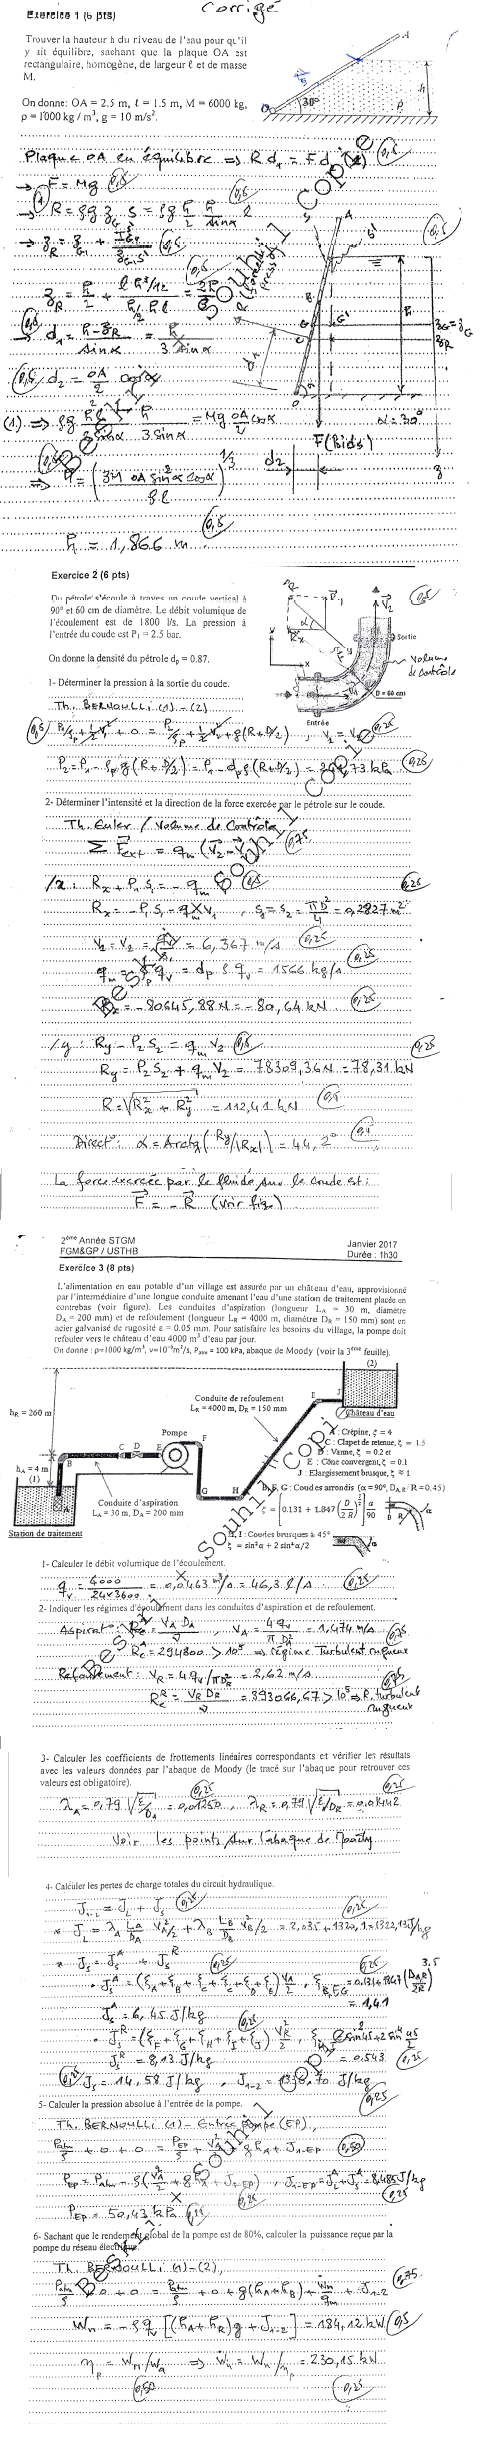 Corrigé
Exercice 1 (6 pts)
Trouver la hauteur h du niveau de l'eau pour qu'il
y ait équilibre, sachant que la plaque OA est
rectangulaire, homogène, de largeur ℓ et de masse
M.
On donne: OA = 2.5 m, ℓ = 1.5 m, M = 6000 kg,
ρ = 1000 kg / m³, g = 10 m/s².
Plaque OA en équilibre ⇒ R d₁ = F d₂ (1)
→ F = Mg
→ R = ρg z_G S = ρg h/2 h/sinα ℓ
d₂ = OA/2 cosα
(1) ⇒ ρg h²ℓ/2sinα h/3sinα = Mg OA/2 cosα
⇒ h = (3M OA sin²α cosα / ρℓ)^1/3
h = 1,866 m
F (Poids)
α = 30°
Exercice 2 (6 pts)
Du pétrole s'écoule à travers un coude vertical à
90° et 60 cm de diamètre. Le débit volumique de
l'écoulement est de 1800 l/s. La pression à
l'entrée du coude est P₁ = 2.5 bar.
On donne la densité du pétrole dₚ = 0.87.
Sortie
volume de contrôle
D = 60 cm
Entrée
1- Déterminer la pression à la sortie du coude.
Th. BERNOULLI (1) - (2)
2- Déterminer l'intensité et la direction de la force exercée par le pétrole sur le coude.
Th. Euler / Volume de Contrôle
Σ F⃗ext = qm (V⃗₂ - V⃗₁)
/x : Rx + P₁ S₁ = - qm V₁
Rx = - P₁ S₁ - qm V₁ , S₁ = S₂ = πD²/4 = 0,2827 m²
V₁ = V₂ = 6,367 m/s
qm = ρp qv = dp ρ qv = 1566 kg/s
Rx = - 80645,88 N = - 80,64 kN
/y : Ry - P₂ S₂ = qm V₂
Ry = P₂ S₂ + qm V₂ = 78309,36 N = 78,31 kN
R = √(Rx² + Ry²) = 112,41 kN
Direct° : α = Arctg (Ry/|Rx|) = 44,2°
La force exercée par le fluide sur le coude est :
F⃗ = - R⃗ (voir fig)
2ème Année STGM
FGM&GP / USTHB
Janvier 2017
Durée : 1h30
Exercice 3 (8 pts)
L'alimentation en eau potable d'un village est assurée par un château d'eau, approvisionné
par l'intermédiaire d'une longue conduite amenant l'eau d'une station de traitement placée en
contrebas (voir figure). Les conduites d'aspiration (longueur LA = 30 m, diamètre
DA = 200 mm) et de refoulement (longueur LR = 4000 m, diamètre DR = 150 mm) sont en
acier galvanisé de rugosité ε = 0.05 mm. Pour satisfaire les besoins du village, la pompe doit
refouler vers le château d'eau 4000 m³ d'eau par jour.
On donne : ρ=1000 kg/m³, ν=10⁻⁶m²/s, Patm = 100 kPa, abaque de Moody (voir la 3ème feuille).
(2)
Conduite de refoulement
LR = 4000 m, DR = 150 mm
Château d'eau
hR = 260 m
Pompe
hA = 4 m
(1)
A : Crépine, ζ = 4
C : Clapet de retenue, ζ = 1.5
D : Vanne, ζ = 0.2 et
E : Cône convergent, ζ = 0.1
J : Elargissement brusque, ζ ≈ 1
B, F, G : Coudes arrondis (α = 90°, DA,R / R = 0.45)
ζ = [0.131 + 1.847 (D/2R)^3.5] α/90
H, I : Coudes brusques à 45°
ζ = sin²α + 2 sin⁴ α/2
Conduite d'aspiration
LA = 30 m, DA = 200 mm
Station de traitement
1- Calculer le débit volumique de l'écoulement.
qv = 4000/24×3600 = 0,0463 m³/s = 46,3 l/s
2- Indiquer les régimes d'écoulement dans les conduites d'aspiration et de refoulement.
Aspirat° : Re = VA DA/ν , VA = 4 qv/π DA² = 1,474 m/s
Re^A = 294800 > 10⁵ ⇒ régime Turbulent rugueux
Refoulement : VR = 4 qv/πDR² = 2,62 m/s
Re^R = VR DR/ν = 393066,67 > 10⁵ ⇒ R. turbulent rugueux
3- Calculer les coefficients de frottements linéaires correspondants et vérifier les résultats
avec les valeurs données par l'abaque de Moody (le tracé sur l'abaque pour retrouver ces
valeurs est obligatoire).
λA = 0,79 √(ε/DA) = 0,01250 , λR = 0,79 √(ε/DR) = 0,01442
Voir les points sur l'abaque de Moody
4- Calculer les pertes de charge totales du circuit hydraulique.
J₁₋₂ = JL + Js
Js = Js^A + Js^R
Js^A = 6,45 J/kg
Js^R = 8,13 J/kg
Js = 14,58 J/kg
5- Calculer la pression absolue à l'entrée de la pompe.
Th. BERNOULLI (1) - Entrée Pompe (EP),
PEp = 50,43 kPa
6- Sachant que le rendement global de la pompe est de 80%, calculer la puissance reçue par la
pompe du réseau électrique.
Th. BERNOULLI (1) - (2),
Wn = - ρ qv [(hA + hR) g + J₁₋₂] = 184,12 kW
ηp = Wn/Wa ⇒ Wa = Wn/ηp = 230,15 kW
Souhil Copie
Beskri